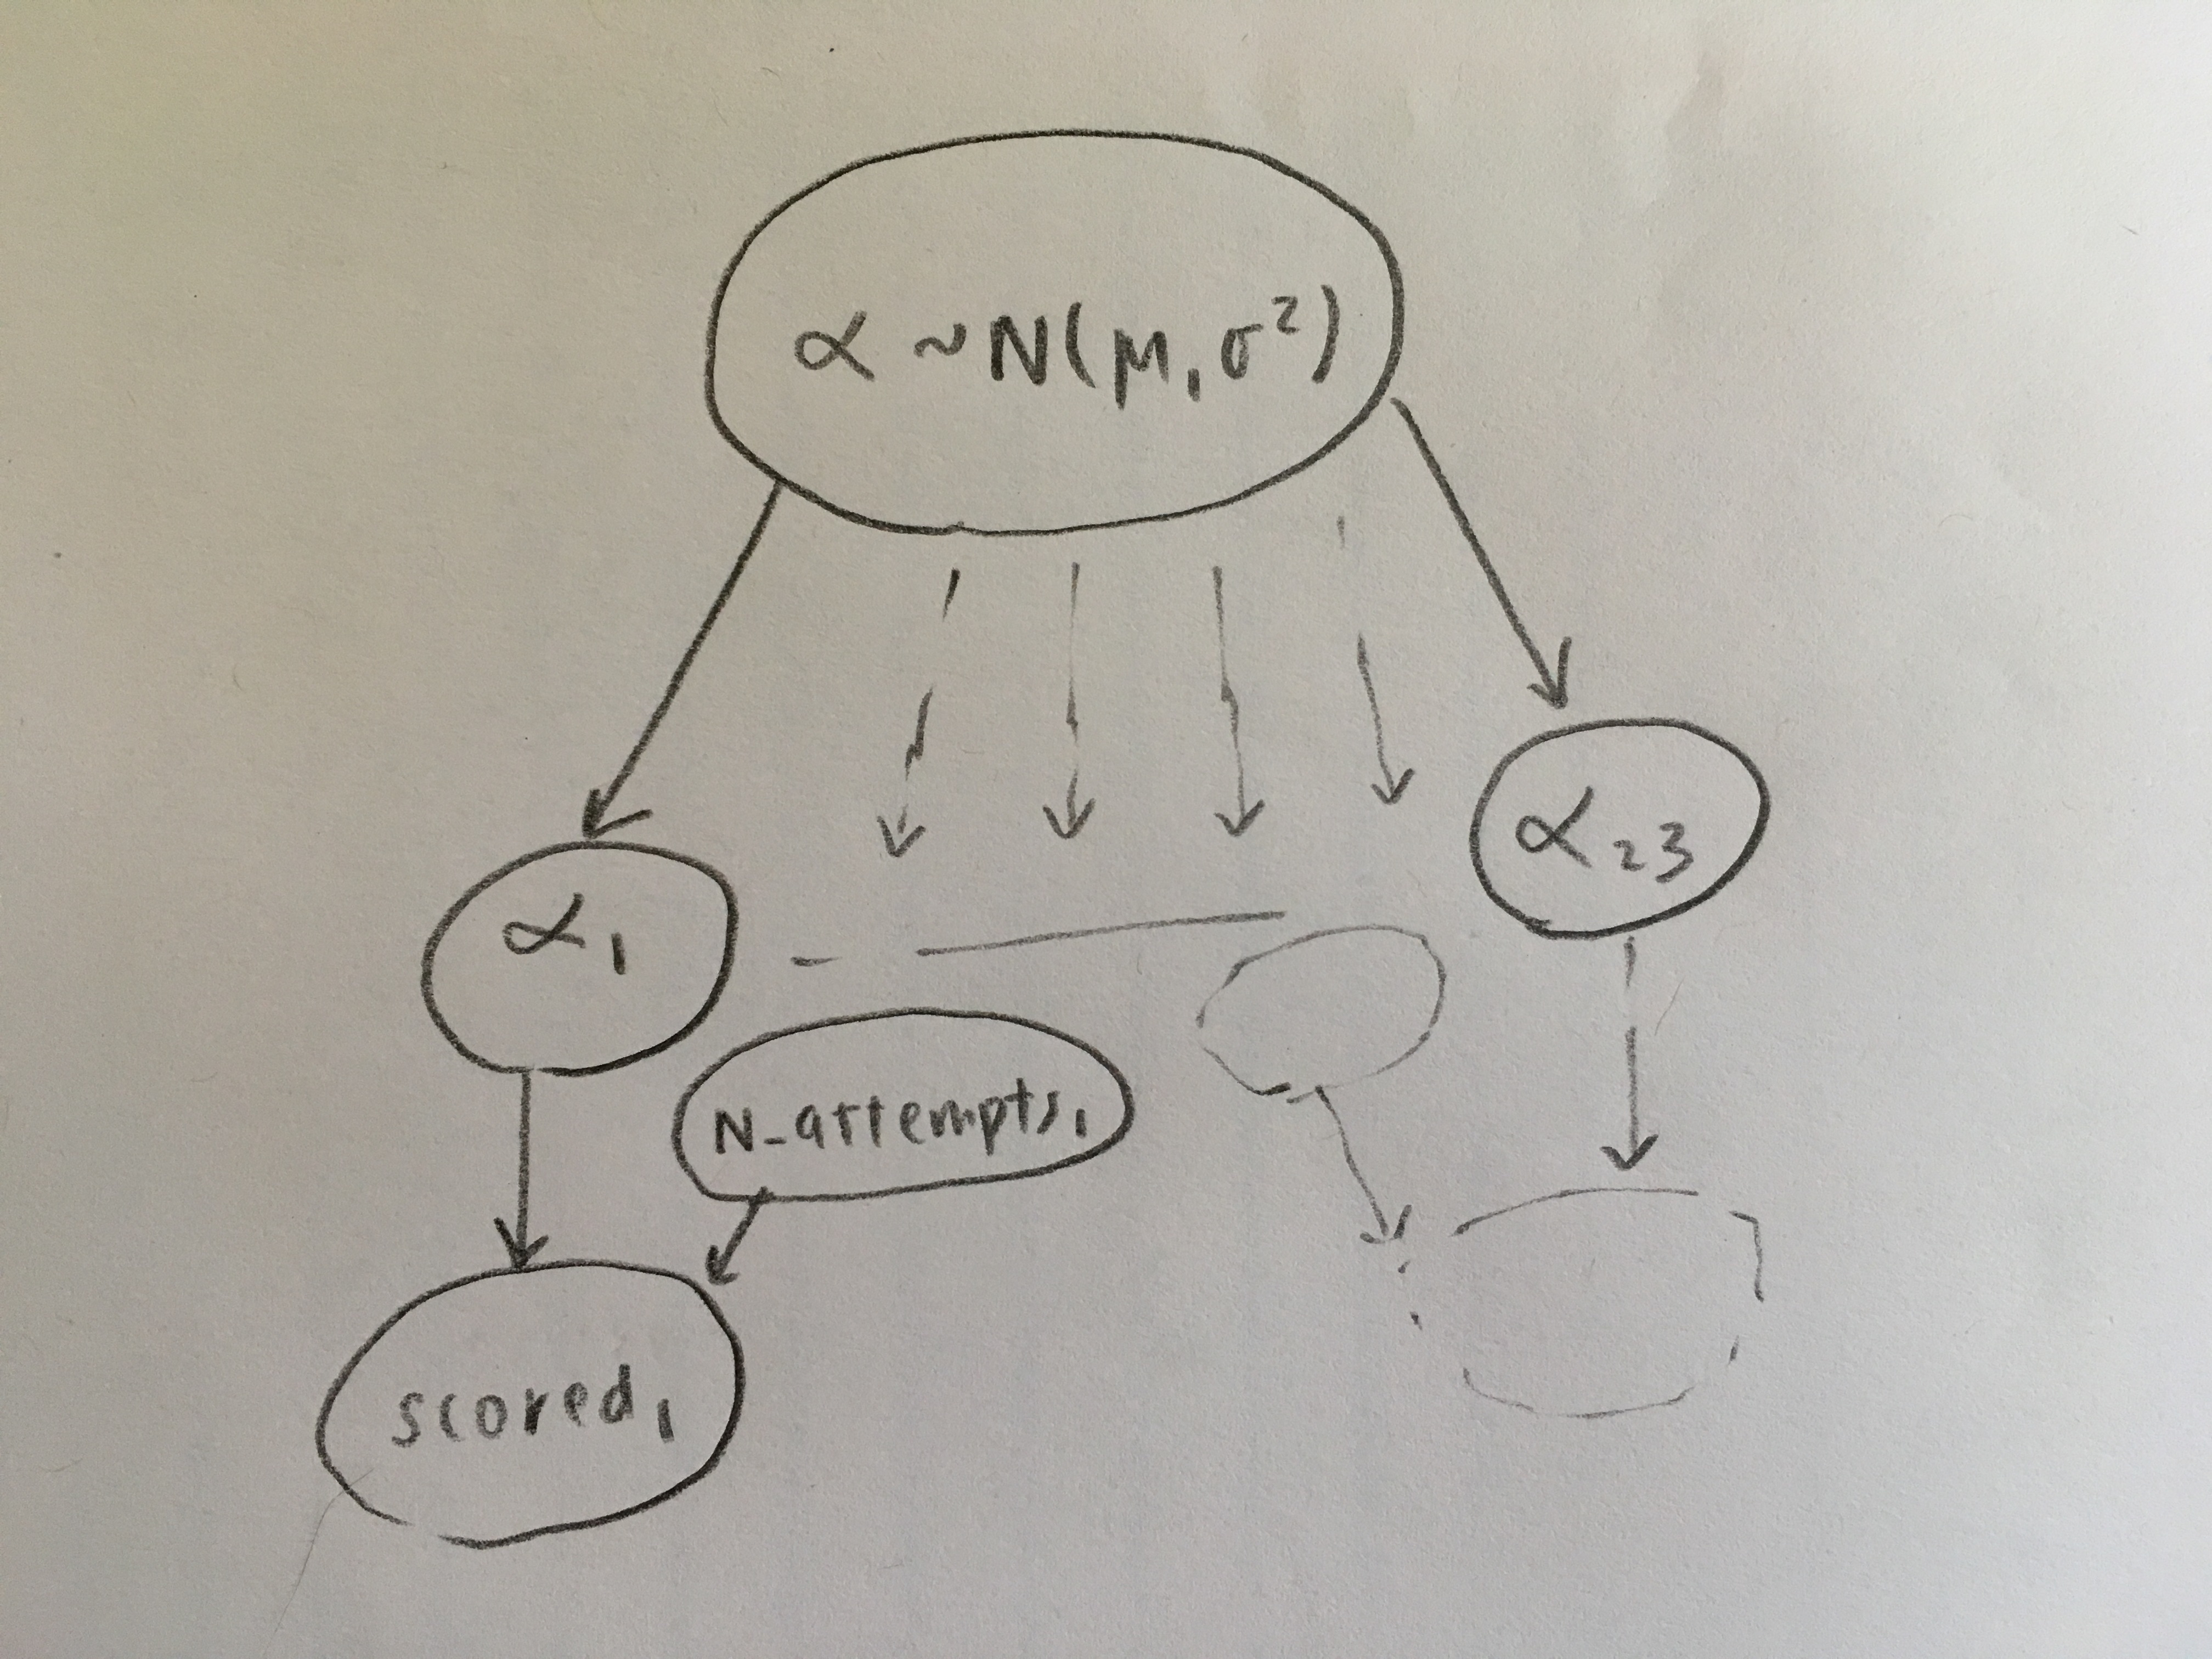 α ~ N(μ, σ²)
α₂₃
α₁
N-attempts₁
scored₁